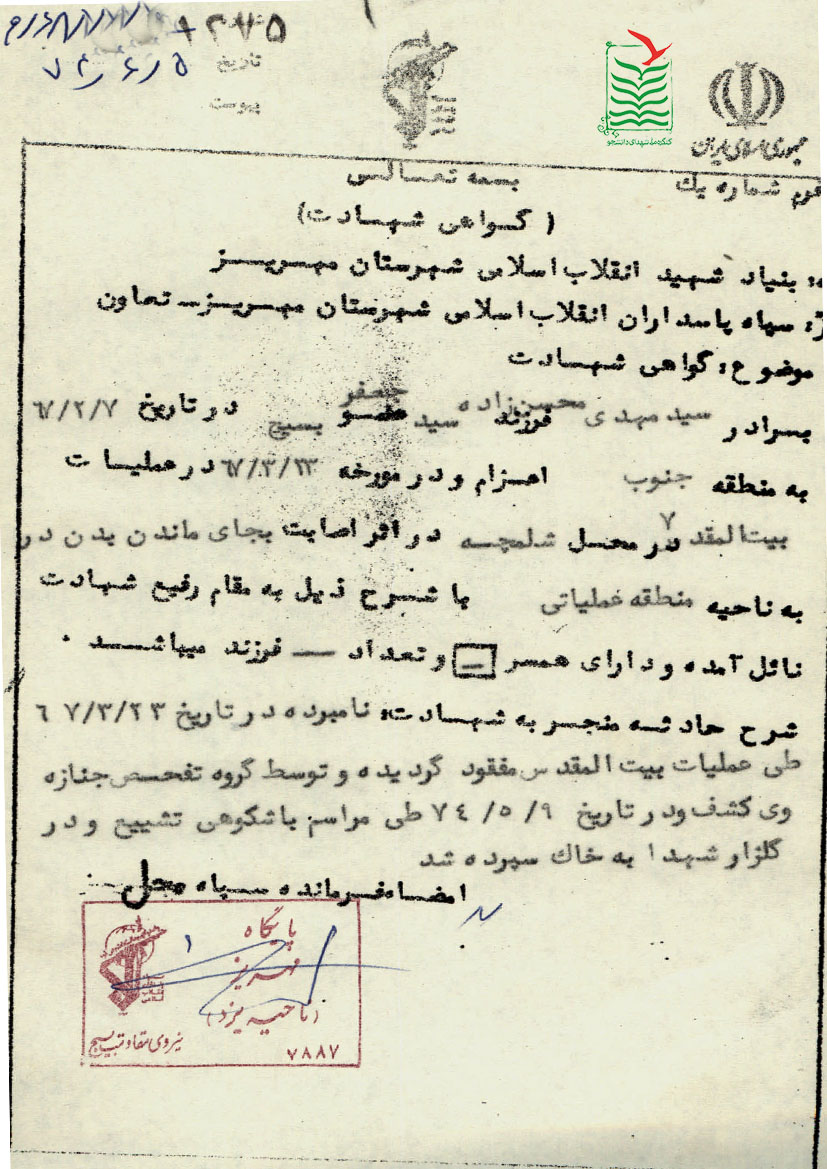 ۷۴/۶/۵
تاریخ
پیوست
کنگره ملی شهدای دانشجو
جمهوری اسلامی ایران
بسمه تعالی
فرم شماره یک
( گواهی شهادت )
به: بنیاد شهید انقلاب اسلامی شهرستان مهریز
از: سپاه پاسداران انقلاب اسلامی شهرستان مهریز ـ تعاون
موضوع: گواهی شهادت
برادر سید مهدی محسن‌زاده فرزند سید جعفر عضو بسیج در تاریخ ۶۷/۲/۷
به منطقه جنوب اعزام و در مورخه ۶۷/۳/۲۳ در عملیات
بیت المقد ۷ در محل شلمچه در اثر اصابت بجای ماندن بدن در
به ناحیه منطقه عملیاتی با شرح ذیل به مقام رفیع شهادت
نائل آمده و دارای همسر ــ و تعداد ــ فرزند میباشد .
شرح حادثه منجر به شهادت: نامبرده در تاریخ ۶۷/۳/۲۳
طی عملیات بیت المقدس مفقود گردیده و توسط گروه تفحص جنازه
وی کشف ودر تاریخ ۷۴/۵/۹ طی مراسم باشکوهی تشییع و در
گلزار شهدا به خاک سپرده شد
امضاء فرمانده سپاه محل
پایگاه
مهریز
(ناحیه یزد)
نیروی مقاومت بسیج
۷۸۸۷